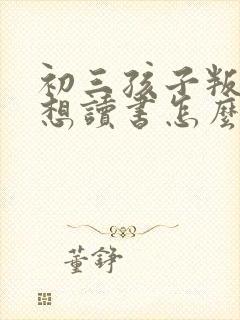 初三孩子叛
想讀書怎麼
董錚